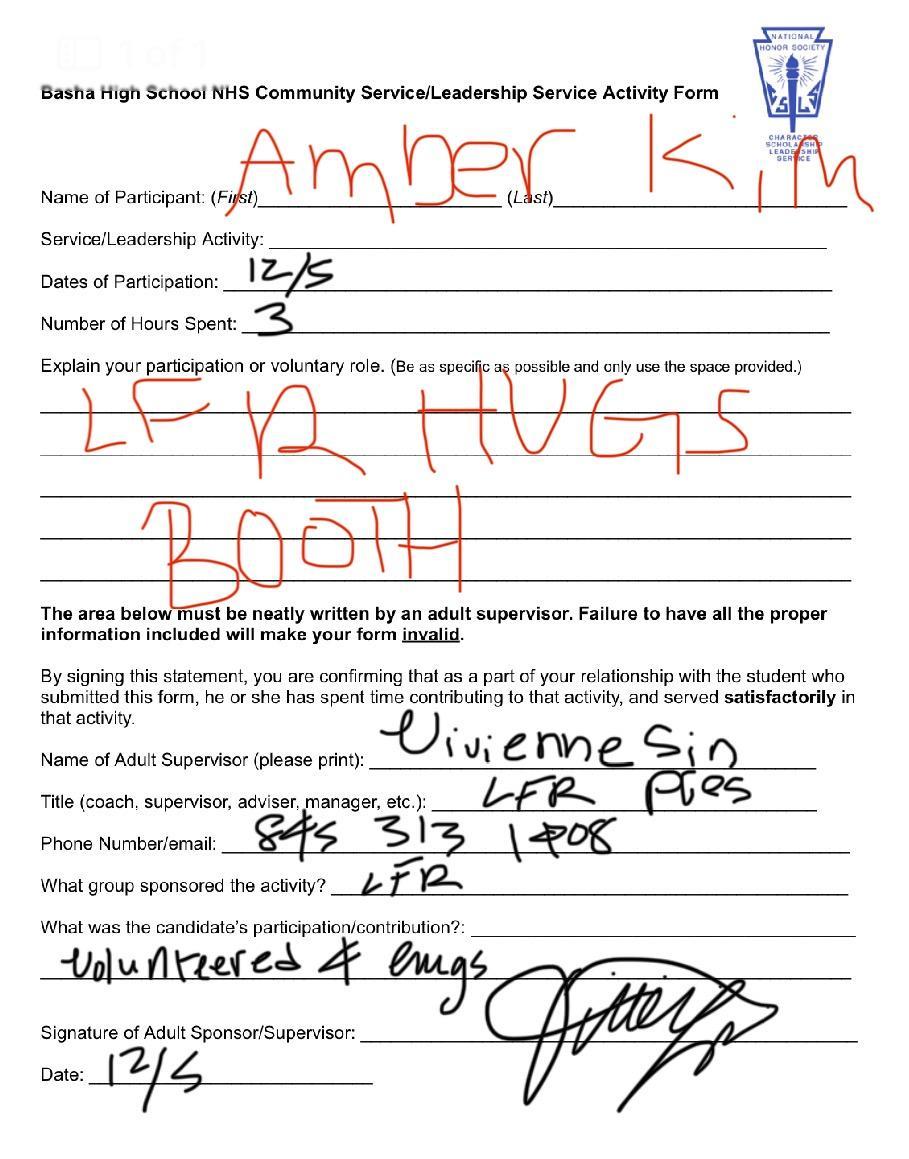 1 of 1
NATIONAL
HONOR SOCIETY
C S L S
CHARACTER
SCHOLARSHIP
LEADERSHIP
SERVICE
Basha High School NHS Community Service/Leadership Service Activity Form
Name of Participant: (First) Amber (Last) Kim
Service/Leadership Activity:
Dates of Participation: 12/5
Number of Hours Spent: 3
Explain your participation or voluntary role. (Be as specific as possible and only use the space provided.)
LFR HUGS
BOOTH
The area below must be neatly written by an adult supervisor. Failure to have all the proper
information included will make your form invalid.
By signing this statement, you are confirming that as a part of your relationship with the student who
submitted this form, he or she has spent time contributing to that activity, and served satisfactorily in
that activity.
Name of Adult Supervisor (please print): Vivienne Sin
Title (coach, supervisor, adviser, manager, etc.): LFR Pres
Phone Number/email: 845 313 1408
What group sponsored the activity? LFR
What was the candidate's participation/contribution?:
volunteered 4
Signature of Adult Sponsor/Supervisor:
Date: 12/5